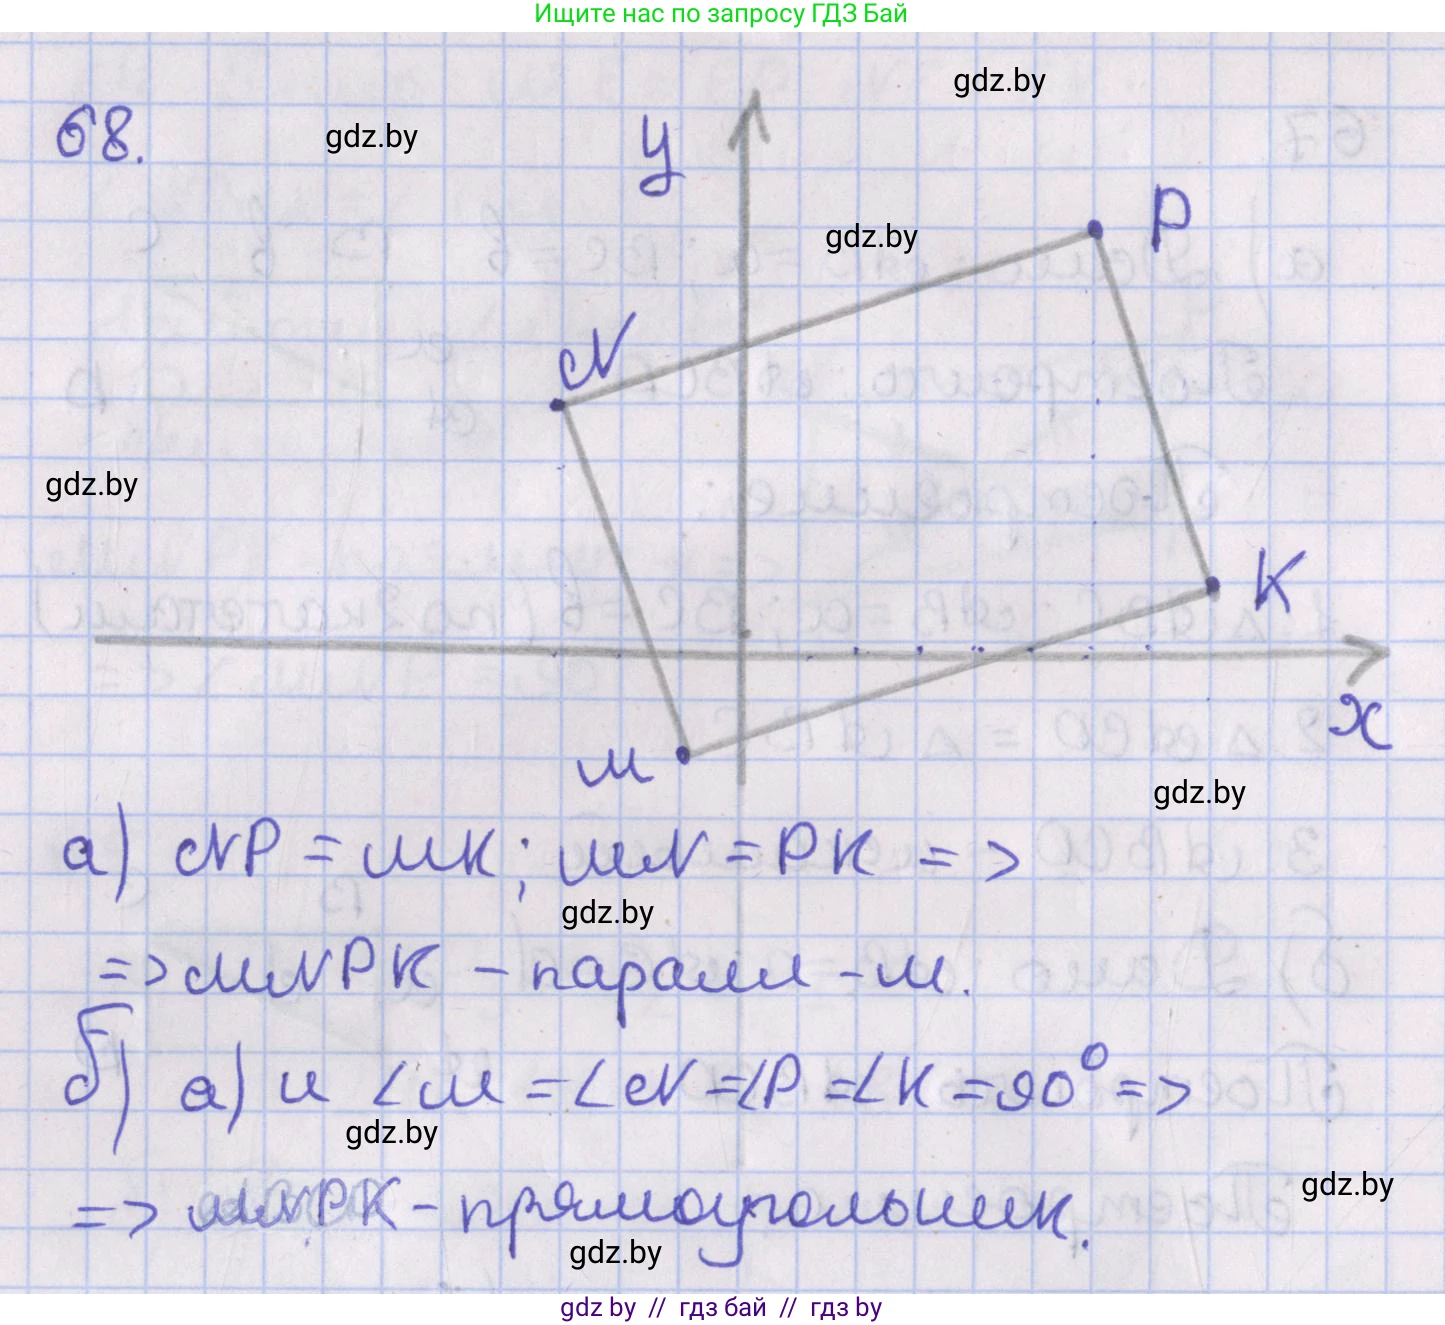 Ищите нас по запросу ГДЗ Бай
gdz.by
68.
gdz.by
y
P
gdz.by
N
gdz.by
K
x
M
gdz.by
а) NP = MK; MN = PK =>
gdz.by
=> MNPK - паралл-м.
б) а) и ∠M = ∠N = ∠P = ∠K = 90° =>
gdz.by
gdz.by
=> MNPK - прямоугольник.
gdz.by
gdz by // гдз бай // гдз by